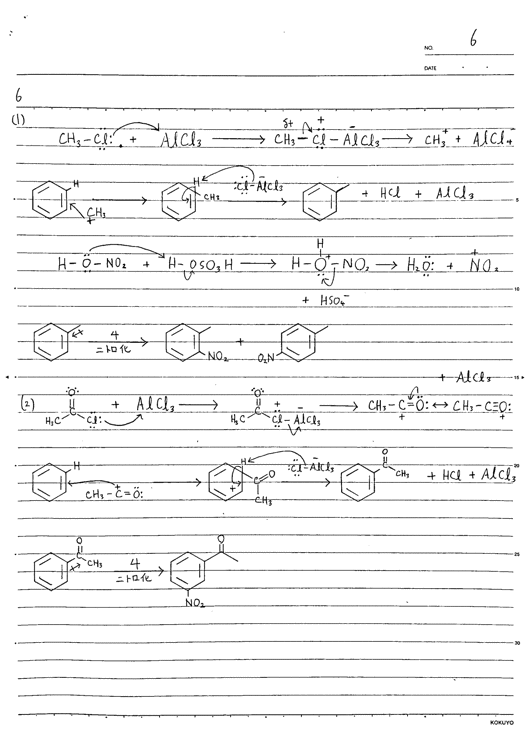 NO. 6
DATE
6
(1)
CH3-Cl: + AlCl3 → δ+ CH3-Cl+-AlCl3− → CH3+ + AlCl4−
H CH3+ → H CH3 :Cl-AlCl3− → + HCl + AlCl3 5
H-O-NO2 + H-OSO3H → H-O+(H)-NO2 → H2O: + NO2+
+ HSO4− 10
4 ニトロ化 → NO2 + O2N
+ AlCl3 15
(2) H3C C O Cl: + AlCl3 → H3C C O Cl+-AlCl3− → CH3-C+=O: ↔ CH3-C≡O:+
H CH3-C+=O: → H C=O CH3 :Cl-AlCl3− → O CH3 + HCl + AlCl3 20
O C CH3 4 ニトロ化 → O NO2 25
30
KOKUYO